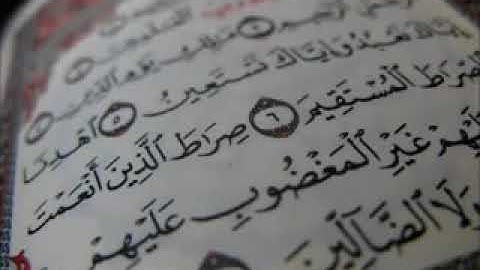 ٱلرَّحِيمِ ۝ مَٰلِكِ يَوْمِ ٱلدِّينِ ۝
إِيَّاكَ نَعْبُدُ وَإِيَّاكَ نَسْتَعِينُ ۝٥ ٱهْدِنَا
ٱلصِّرَٰطَ ٱلْمُسْتَقِيمَ ۝٦ صِرَٰطَ ٱلَّذِينَ أَنْعَمْتَ
عَلَيْهِمْ غَيْرِ ٱلْمَغْضُوبِ عَلَيْهِمْ
وَلَا ٱلضَّآلِّينَ